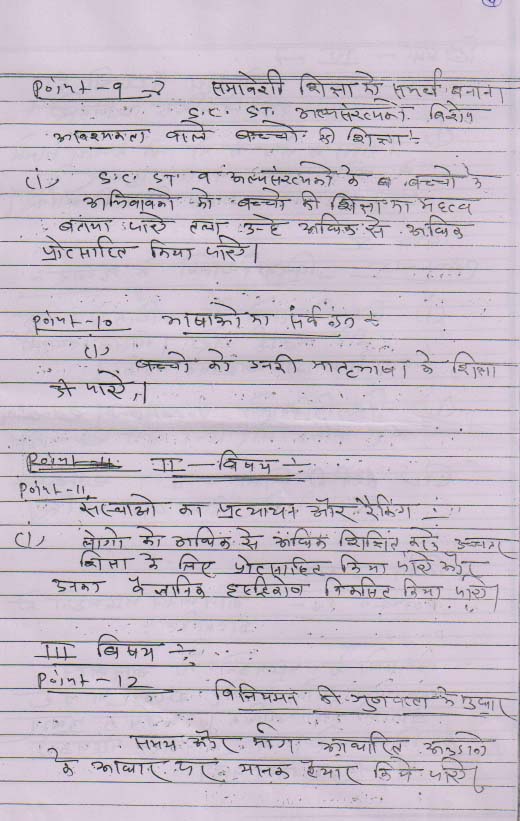 Point-9 समावेशी शिक्षा को समर्थ बनाना
S.C. ST. अल्पसंख्यको विशेष
आवश्यकता वाले बच्चो की शिक्षा :-
(i) S.C. ST. व अल्पसंख्यको के बच्चो के
अभिवावको को बच्चो की शिक्षा का महत्व
बताया जाऐ तथा उन्हे अधिक से अधिक
प्रोत्साहित किया जाऐ।
Point-10 भाषाओ का :-
(i) बच्चो को उनकी मातृभाषा के शिक्षा
दी जाऐ,।
II - विषय :-
Point-11
संस्थाओ का प्रत्यायन और रैंकिंग :-
(i) लोगो को अधिक से अधिक शिक्षित करे उच्चतर
शिक्षा के लिए प्रोत्साहित किया जाऐ और
उनका वैज्ञानिक दृष्टिकोण विकसित किया जाऐ।
III विषय :-
Point-12 विनियमन की गुणवत्ता के
समय और मांग आधारित
के आधार पर मानक तैयार किये जाऐ।